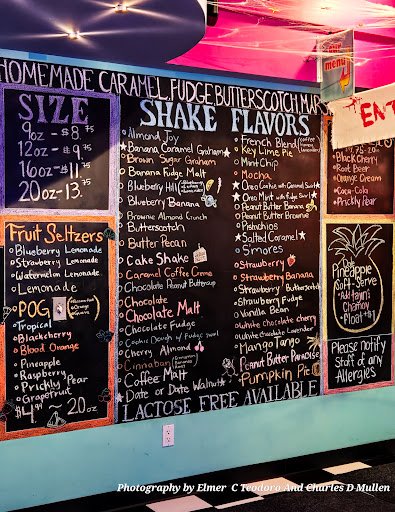 HOMEMADE CARAMEL, FUDGE, BUTTERSCOTCH, MAR
menu
SIZE
9oz - $8.75
12oz - $9.75
16oz - 11.75
20oz - 13.75
Fruit Seltzers
Blueberry Lemonade
Strawberry Lemonade
Watermelon Lemonade
Lemonade
POG
Tropical
Blackcherry
Blood Orange
Pineapple
Raspberry
Prickly Pear
Grapefruit
20oz
SHAKE FLAVORS
Almond Joy
Banana Caramel Graham
Brown Sugar Graham
Banana Fudge Malt
Blueberry Hill
Blueberry Banana
Brownie Almond Crunch
Butterscotch
Butter Pecan
Cake Shake
Caramel Coffee Crème
Chocolate Peanut Buttercup
Chocolate
Chocolate Malt
Chocolate Fudge
Cookie Dough w/ Fudge Swirl
Cherry Almond
Cinnabanan
Coffee Malt
Date or Date Walnut
French Blend
Key Lime Pie
Mint Chip
Mocha
Oreo Cookie with Caramel Swirl
Oreo Mint with Fudge Swirl
Peanut Butter Banana
Peanut Butter Brownie
Pistachios
Salted Caramel
S'mores
Strawberry
Strawberry Banana
Strawberry Butterscotch
Strawberry Fudge
Vanilla Bean
White Chocolate Cherry
White Chocolate Lavender
Mango Tango
Peanut Butter Paradise
Pumpkin Pie
LACTOSE FREE AVAILABLE
ENT
Black Cherry
Root Beer
Orange Cream
Coca-Cola
Prickly Pear
Pineapple
Soft-Serve
Add Tajin/
Chamoy
Float +$1
Please notify
Staff of any
Allergies
Photography by Elmer C Teodoro And Charles D Mullen